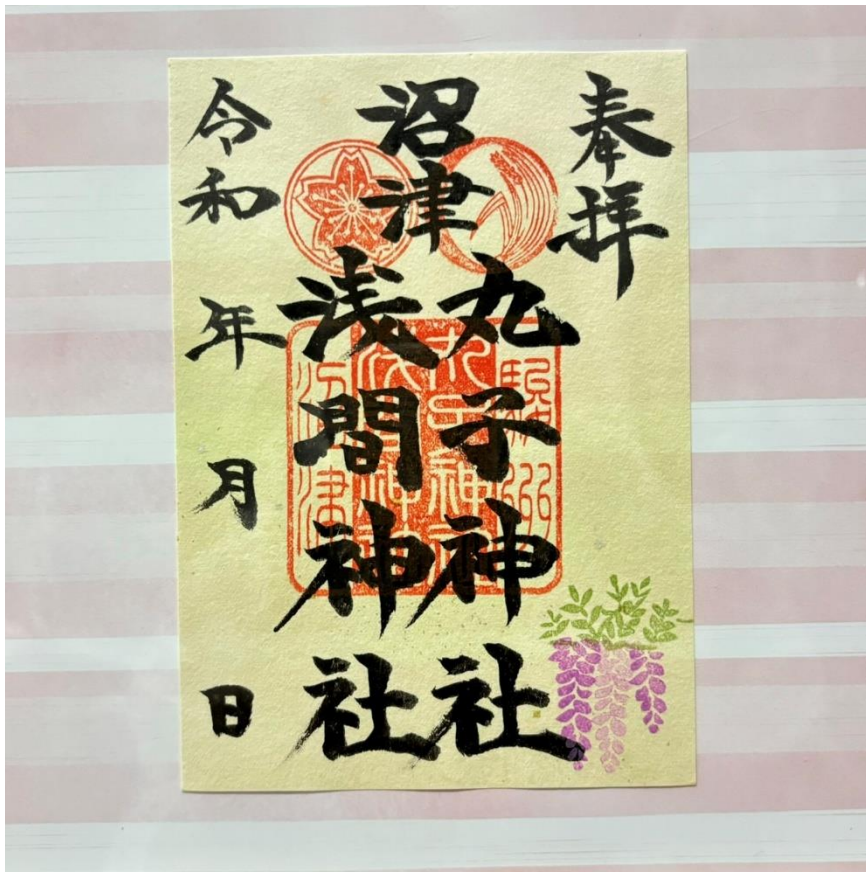 奉拝
沼津
丸子神社
浅間神社
令和 年 月 日
駿州
沼津